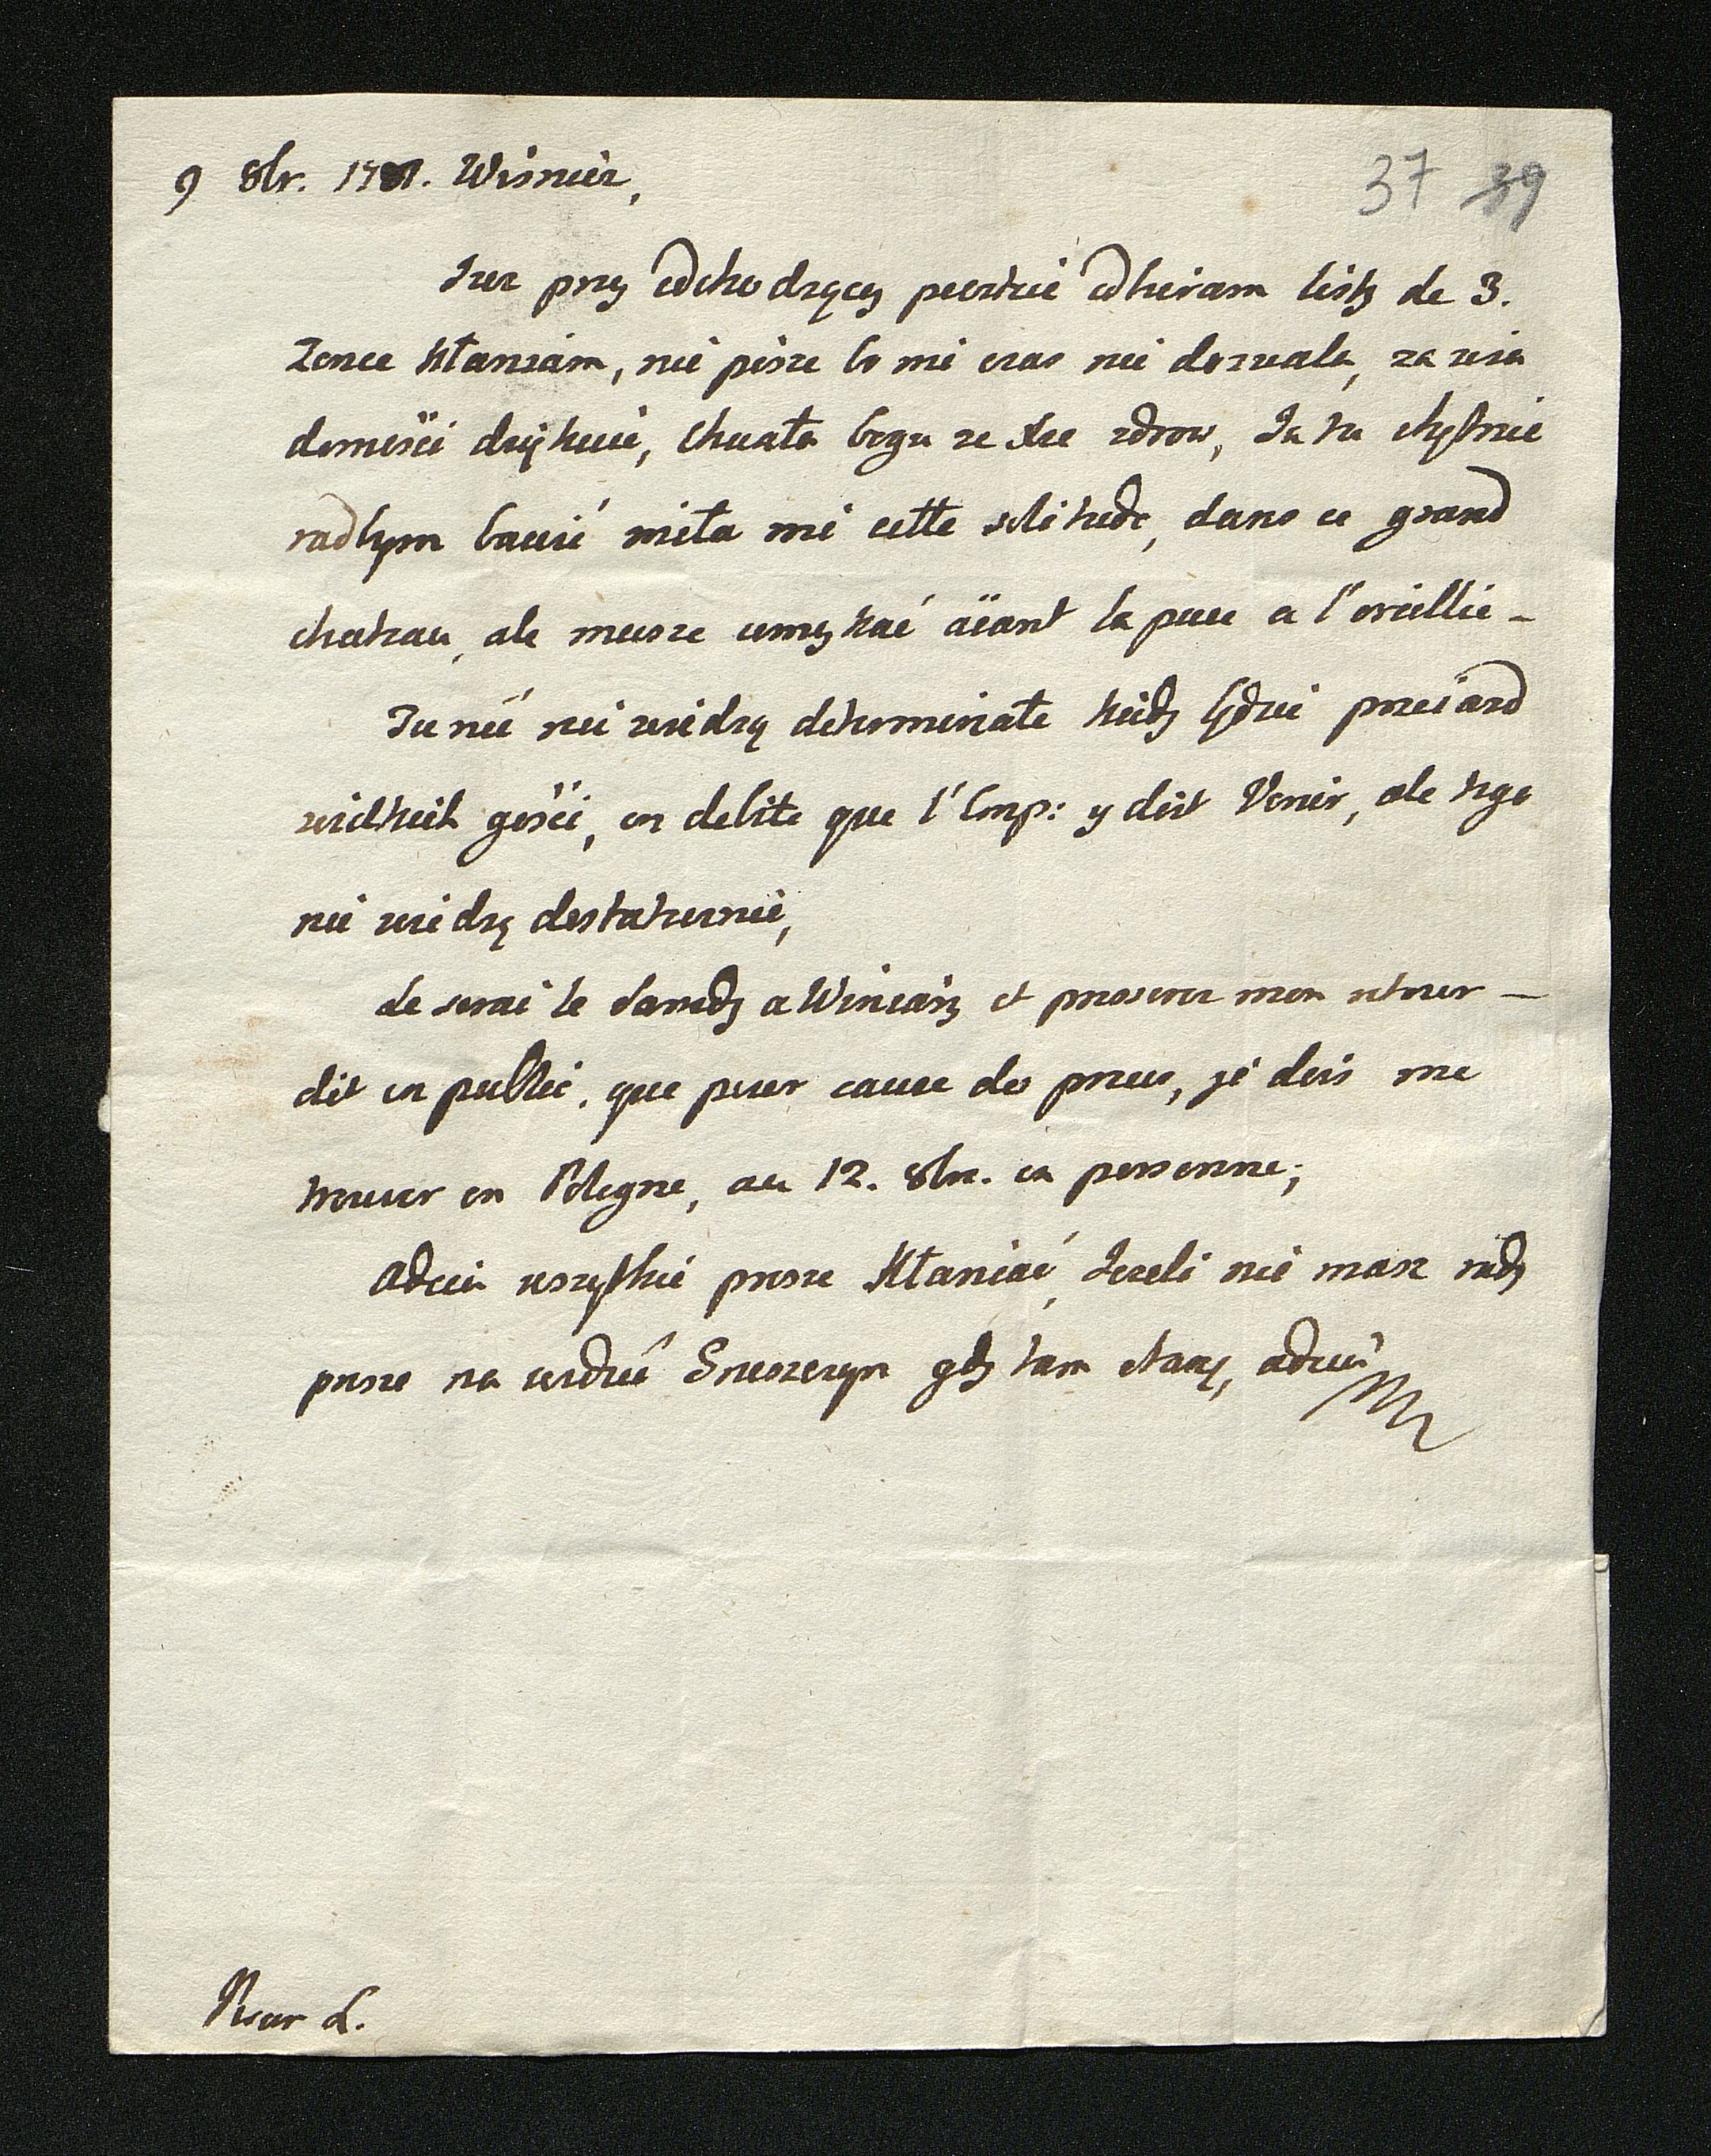 9 8br. 1781. Wisnicz,
37 39
Iuz przy odchodzący poczcie odbieram listy de 3.
Zonce kłaniam, nie pisze bo mi czas nie dozwala, za wia
domosci dziękuie, chwała bogu ze Xze zdrow, Ia tu chętnie
radbym bawić miła mi cette solitude, dans ce grand
chateau, ale musze umykać aïant la puce a l'oreillie -
Tu nic nie wiedzą determinate kiedy będzie przeiazd
wielkich gosci, on debite que l'Emp: y doit Venir, ale tego
nie wiedzą dostatecznie,
Je serai le Samedy a Winiary et presser mon retour -
dit en public, que pour cause de proces, je dois me
trouver en Pologne, au 12. 8br. en personne;
Adieu wszystkie prosze kłaniać, Iezeli nie masz rady
prosze na widzieć gdy tam stany, adieu
Pour L.